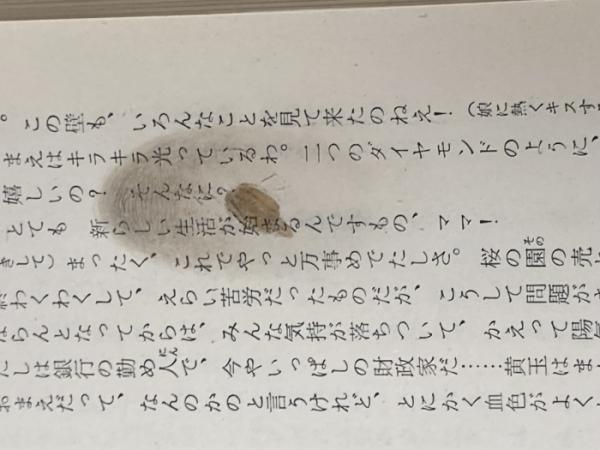 。この壁も、いろんなことを見て来たのねえ！（娘に熱くキスす
まえはキラキラ光っているわ。二つのダイヤモンドのように、
嬉しいの？　そんなに？
とても　新らしい生活が始まるんですもの、ママ！
きして）まったく、これでやっと万事めでたしさ。桜の園の売
終わくわくして、えらい苦労だったものだが、こうして問題がさ
ならんとなってからは、みんな気持が落ちついて、かえって陽気
たしは銀行の勤め人で、今やいっぱしの財政家だ……黄玉はま
おまえだって、なんのかのと言うけれど、とにかく血色がよく